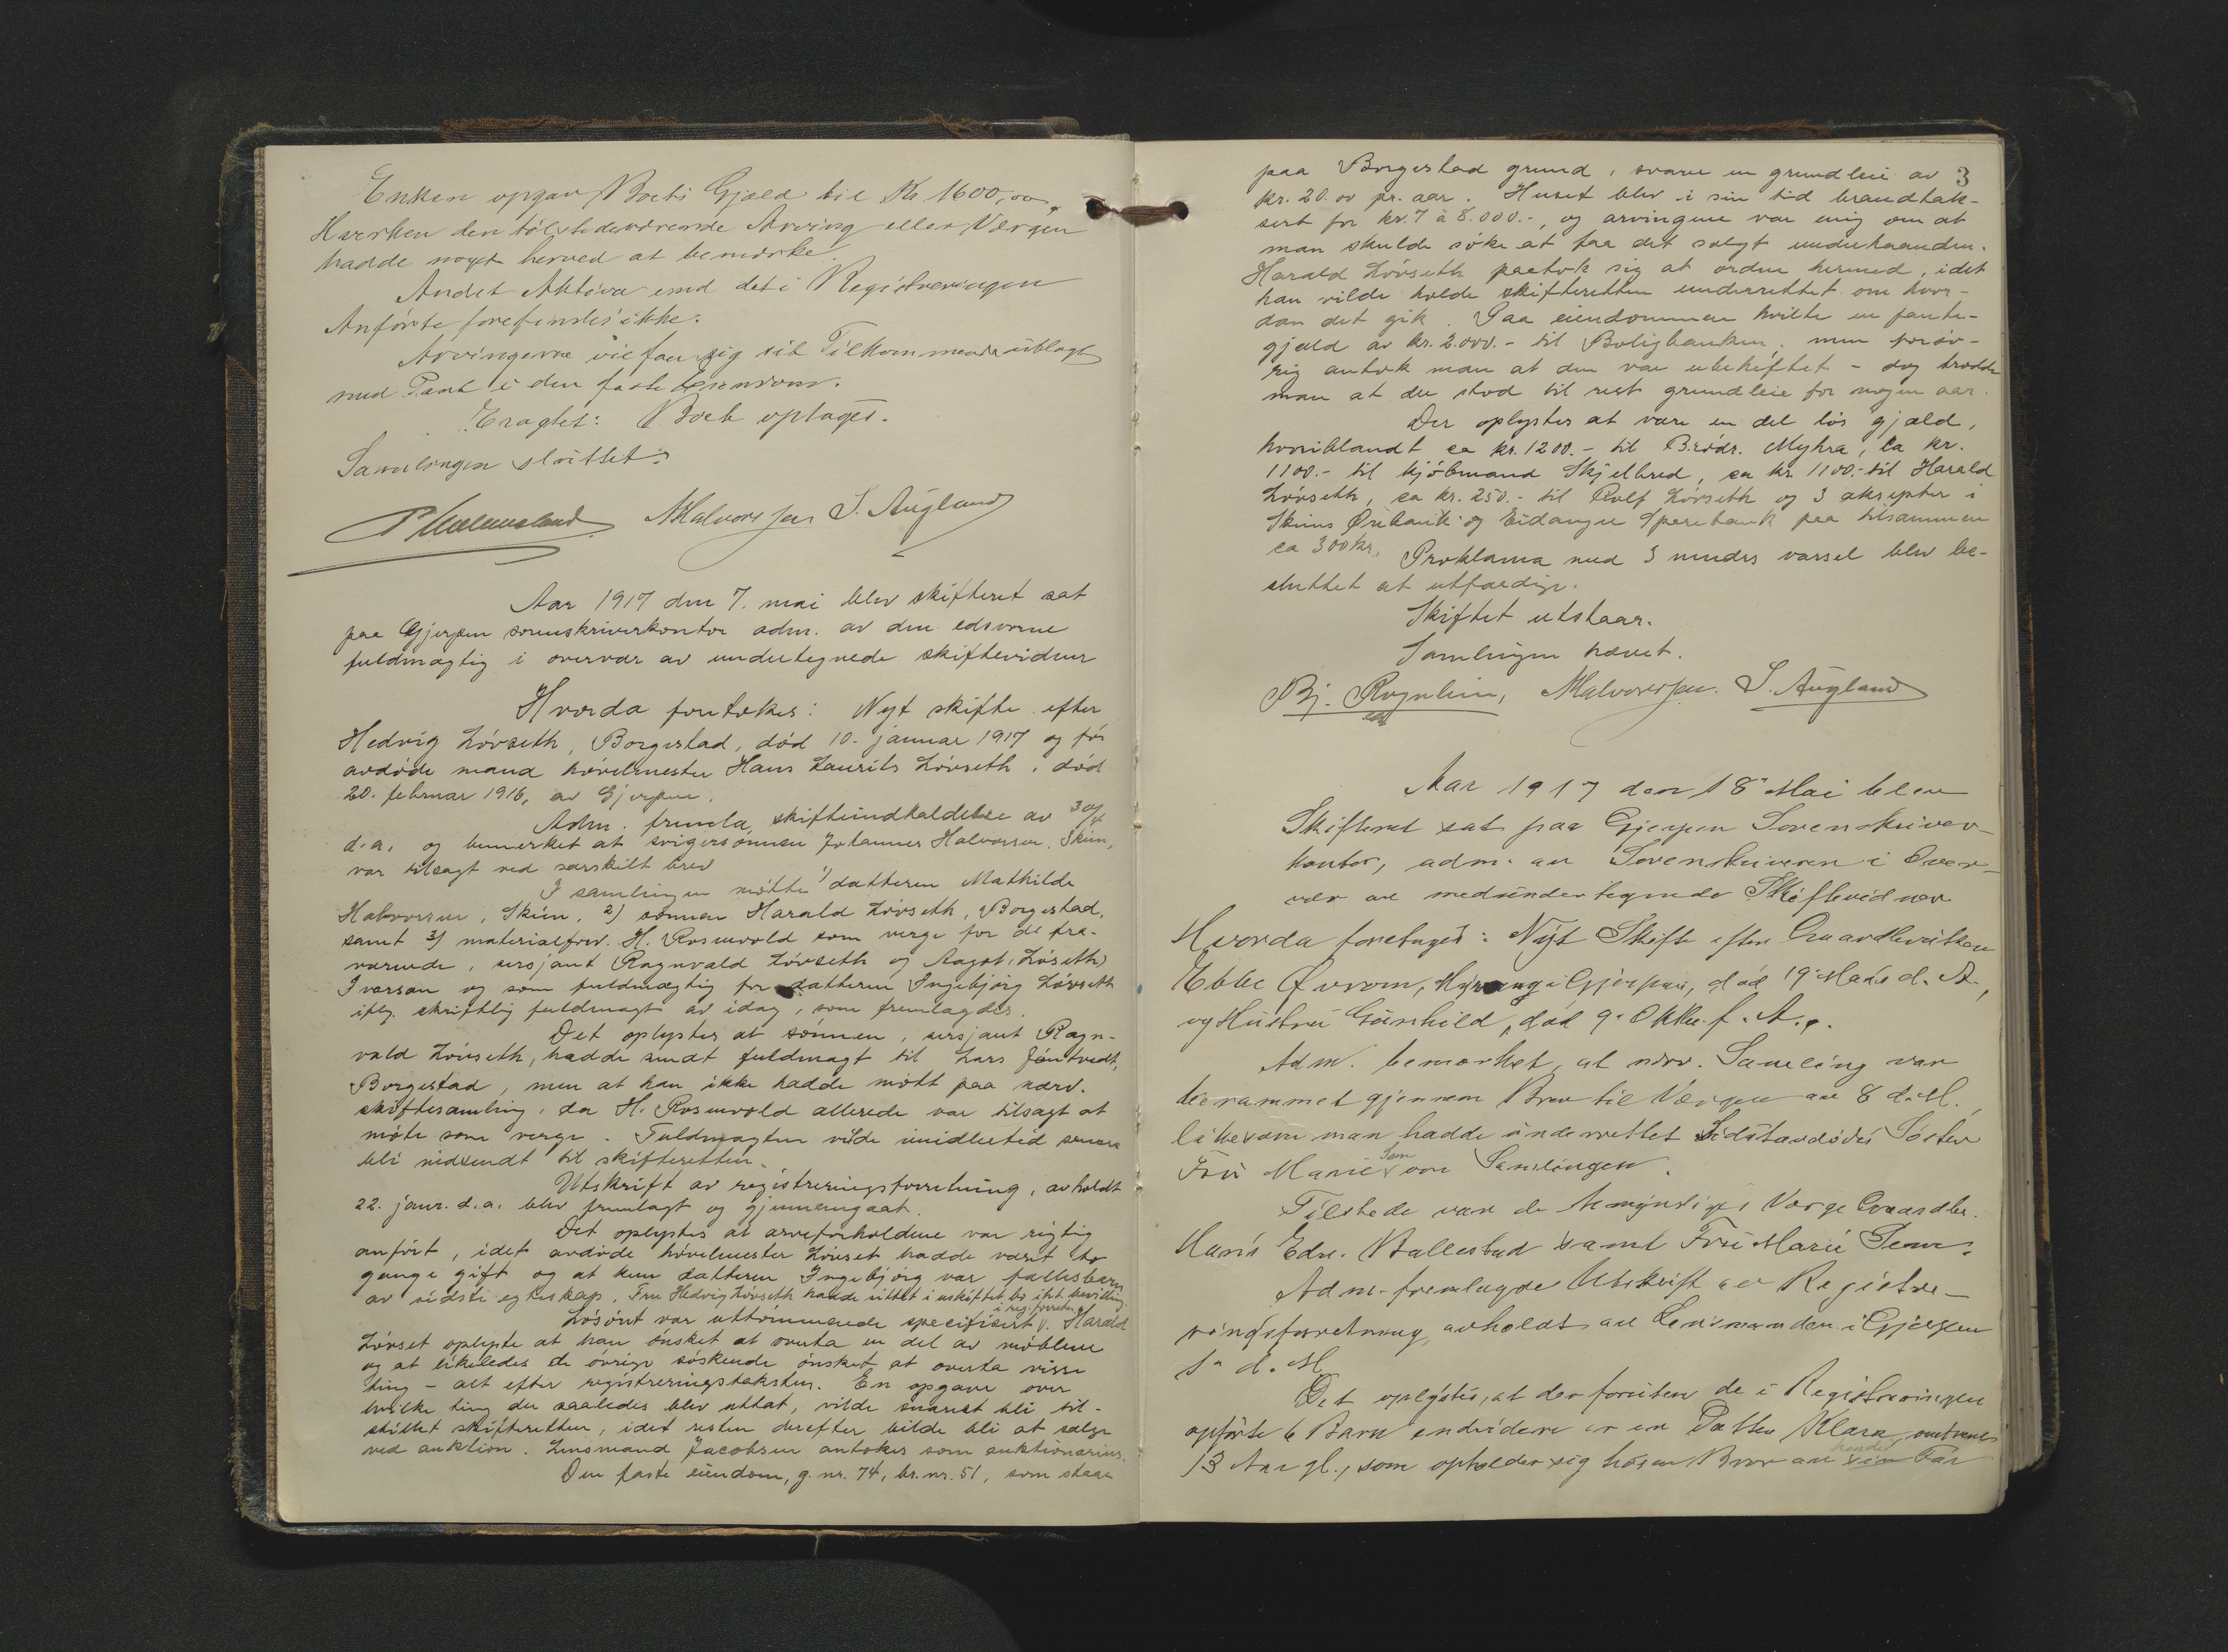 Enken opgav Boets Gjæld til Kr. 1600,00.
Hverken den tilstedeværende Arving eller Værgen
hadde noget herved at bemærke.
Andet Aktiva end det i Registreringen
Anförte forefindes ikke.
Arvingerne vil faa sig sit Tilkommende utlagt
med Pant i den faste Eiendom.
Eragtet: Boet optages.
Samlingen sluttet.
NHalvorsen S. Augland
Aar 1917 den 7. mai blev skifteret sat
paa Gjerpen sorenskriverkontor adm. av den edsvorne
fuldmægtig i overvær av undertegnede skiftevidner
Hvorda foretokes: Nyt skifte efter
Hedvig Lövseth, Borgestad, död 10. januar 1917 og för
avdöde mand hövelmester Hans Laurits Lövseth, död
20. februar 1916, av Gjerpen.
Adm. fremla skifteindkaldelse av 30/4
d.a. og bemerket at svigersönnen Johannes Halvorsen, Skien,
var tilsagt ved særskilt brev
I samlingen mötte 1) datteren Mathilde
Halvorsen, Skien, 2) sönnen Harald Lövseth, Borgestad,
samt 3) materialforv. H. Rosenvold som verge for de fra-
værende, sersjant Ragnvald Lövseth og Aagot (Löseth)
Ivarson og som fuldmægtig for datteren Ingebjörg Lövseth
iflg. skriftlig fuldmagt av idag, som fremlagdes.
Det oplystes at sönnen, sersjant Ragn-
vald Lövseth, hadde sendt fuldmagt til Lars Jöntvedt,
Borgestad, men at han ikke hadde mött paa nærv.
skiftesamling, da H. Rosenvold allerede var tilsagt at
möte som verge. Fuldmagten vilde imidlertid senere
bli nedsendt til skifteretten.
Utskrift av registreringsforretning, avholdt
22. janr. d.a. blev fremlagt og gjennemgaat.
Det oplystes at arveforholdene var rigtig
anfört, idet avdöde hövelmester Lövset hadde været to
gange gift og at kun datteren Ingebjörg var fællesbarn
av sidste egteskap. Fru Hedvig Lövseth hadde sittet i uskiftet bo iht. bevilling.
Lösört var uttömmende specifisert i reg. forretn. Harald
Lövset oplyste at han önsket at overta en del av möblene
og at likeledes de övrige söskende önsket at overta visse
ting - alt efter registreringstaksten. En opgave over
hvilke ting der saaledes blev uttat, vilde snarest bli til-
stillet skifteretten, idet resten derefter vilde bli at sælge
ved auktion. Lensmand Jacobsen antokes som auktionarius.
Den faste eiendom, g.nr. 74, br.nr. 51, som staar
3
paa Borgestad grund, svarer en grundleie av
kr. 20.00 pr. aar. Huset blev i sin tid brandtak-
sert for kr. 7 à 8.000.-, og arvingene var enig om at
man skulde söke at faa det solgt underhaanden.
Harald Lövseth paatok sig at ordne hermed, idet
han vilde holde skifteretten underrettet om hvor-
dan det gik. Paa eiendommen hvilte en pante-
gjæld av kr. 2.000.- til Boligbanken, men foröv-
rig antok man at den var ubeheftet - dog trodde
man at der stod til rest grundleie for nogen aar.
Der oplystes at være en del lös gjæld,
hvoriblandt ca kr. 1200.- til Brödr. Myhra, ca kr.
1100.- til kjöbmand Skjelbred, ca kr. 1100.- til Harald
Lövseth, ca kr. 250.- til Rolf Lövseth og 3 aksepter i
Skiens Örebank og Eidanger Sparebank paa tilsammen
ca 300 kr. Proklama med 3 mndrs varsel blev be-
sluttet at utfærdige.
Skiftet utstaar.
Samlingen hævet.
Bj. Rognlien, NHalvorsen. S. Augland
Aar 1917 den 18de Mai blev
Skifteret sat paa Gjerpen Sorenskriver-
kontor, adm. av Sorenskriveren i Over-
vær av medundertegnede Skiftevidner
Hvorda foretoges: Nyt Skifte efter Gaardbruker
Ebbe Øverom, i Gjerpen, död 19 Mars d. A.,
og Hustru Gunhild, död 9. Oktbr. f. A..
Adm. bemærket, at nærv. Samling var
berammet gjennem Brev til Værgen av 8 d. M.,
likesom man hadde underrettet Sidstavdödes Söster
Fru Marie Sem om Samlingen.
Tilstede var de Umyndiges Værge Gaardbr.
Hans Edv. Ballestad samt Fru Marie Sem.
Adm. fremlagde Utskrift av Registre-
ringsforretning, avholdt av Lensmanden i Gjerpen
1. d. M.
Det oplystes, at der foruten de i Registreringen
opförte 6 Barn endvidere er en Datter Klara, omtrent
13 Aar gl., som opholder sig hos en Bror av hendes Far